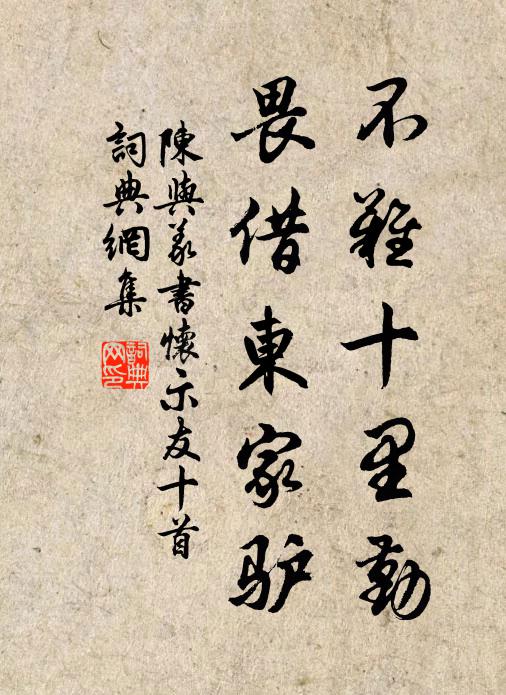 不難十里勤
畏借東家驴
陳與義書懷示友十首
詞典網集
詞典網印